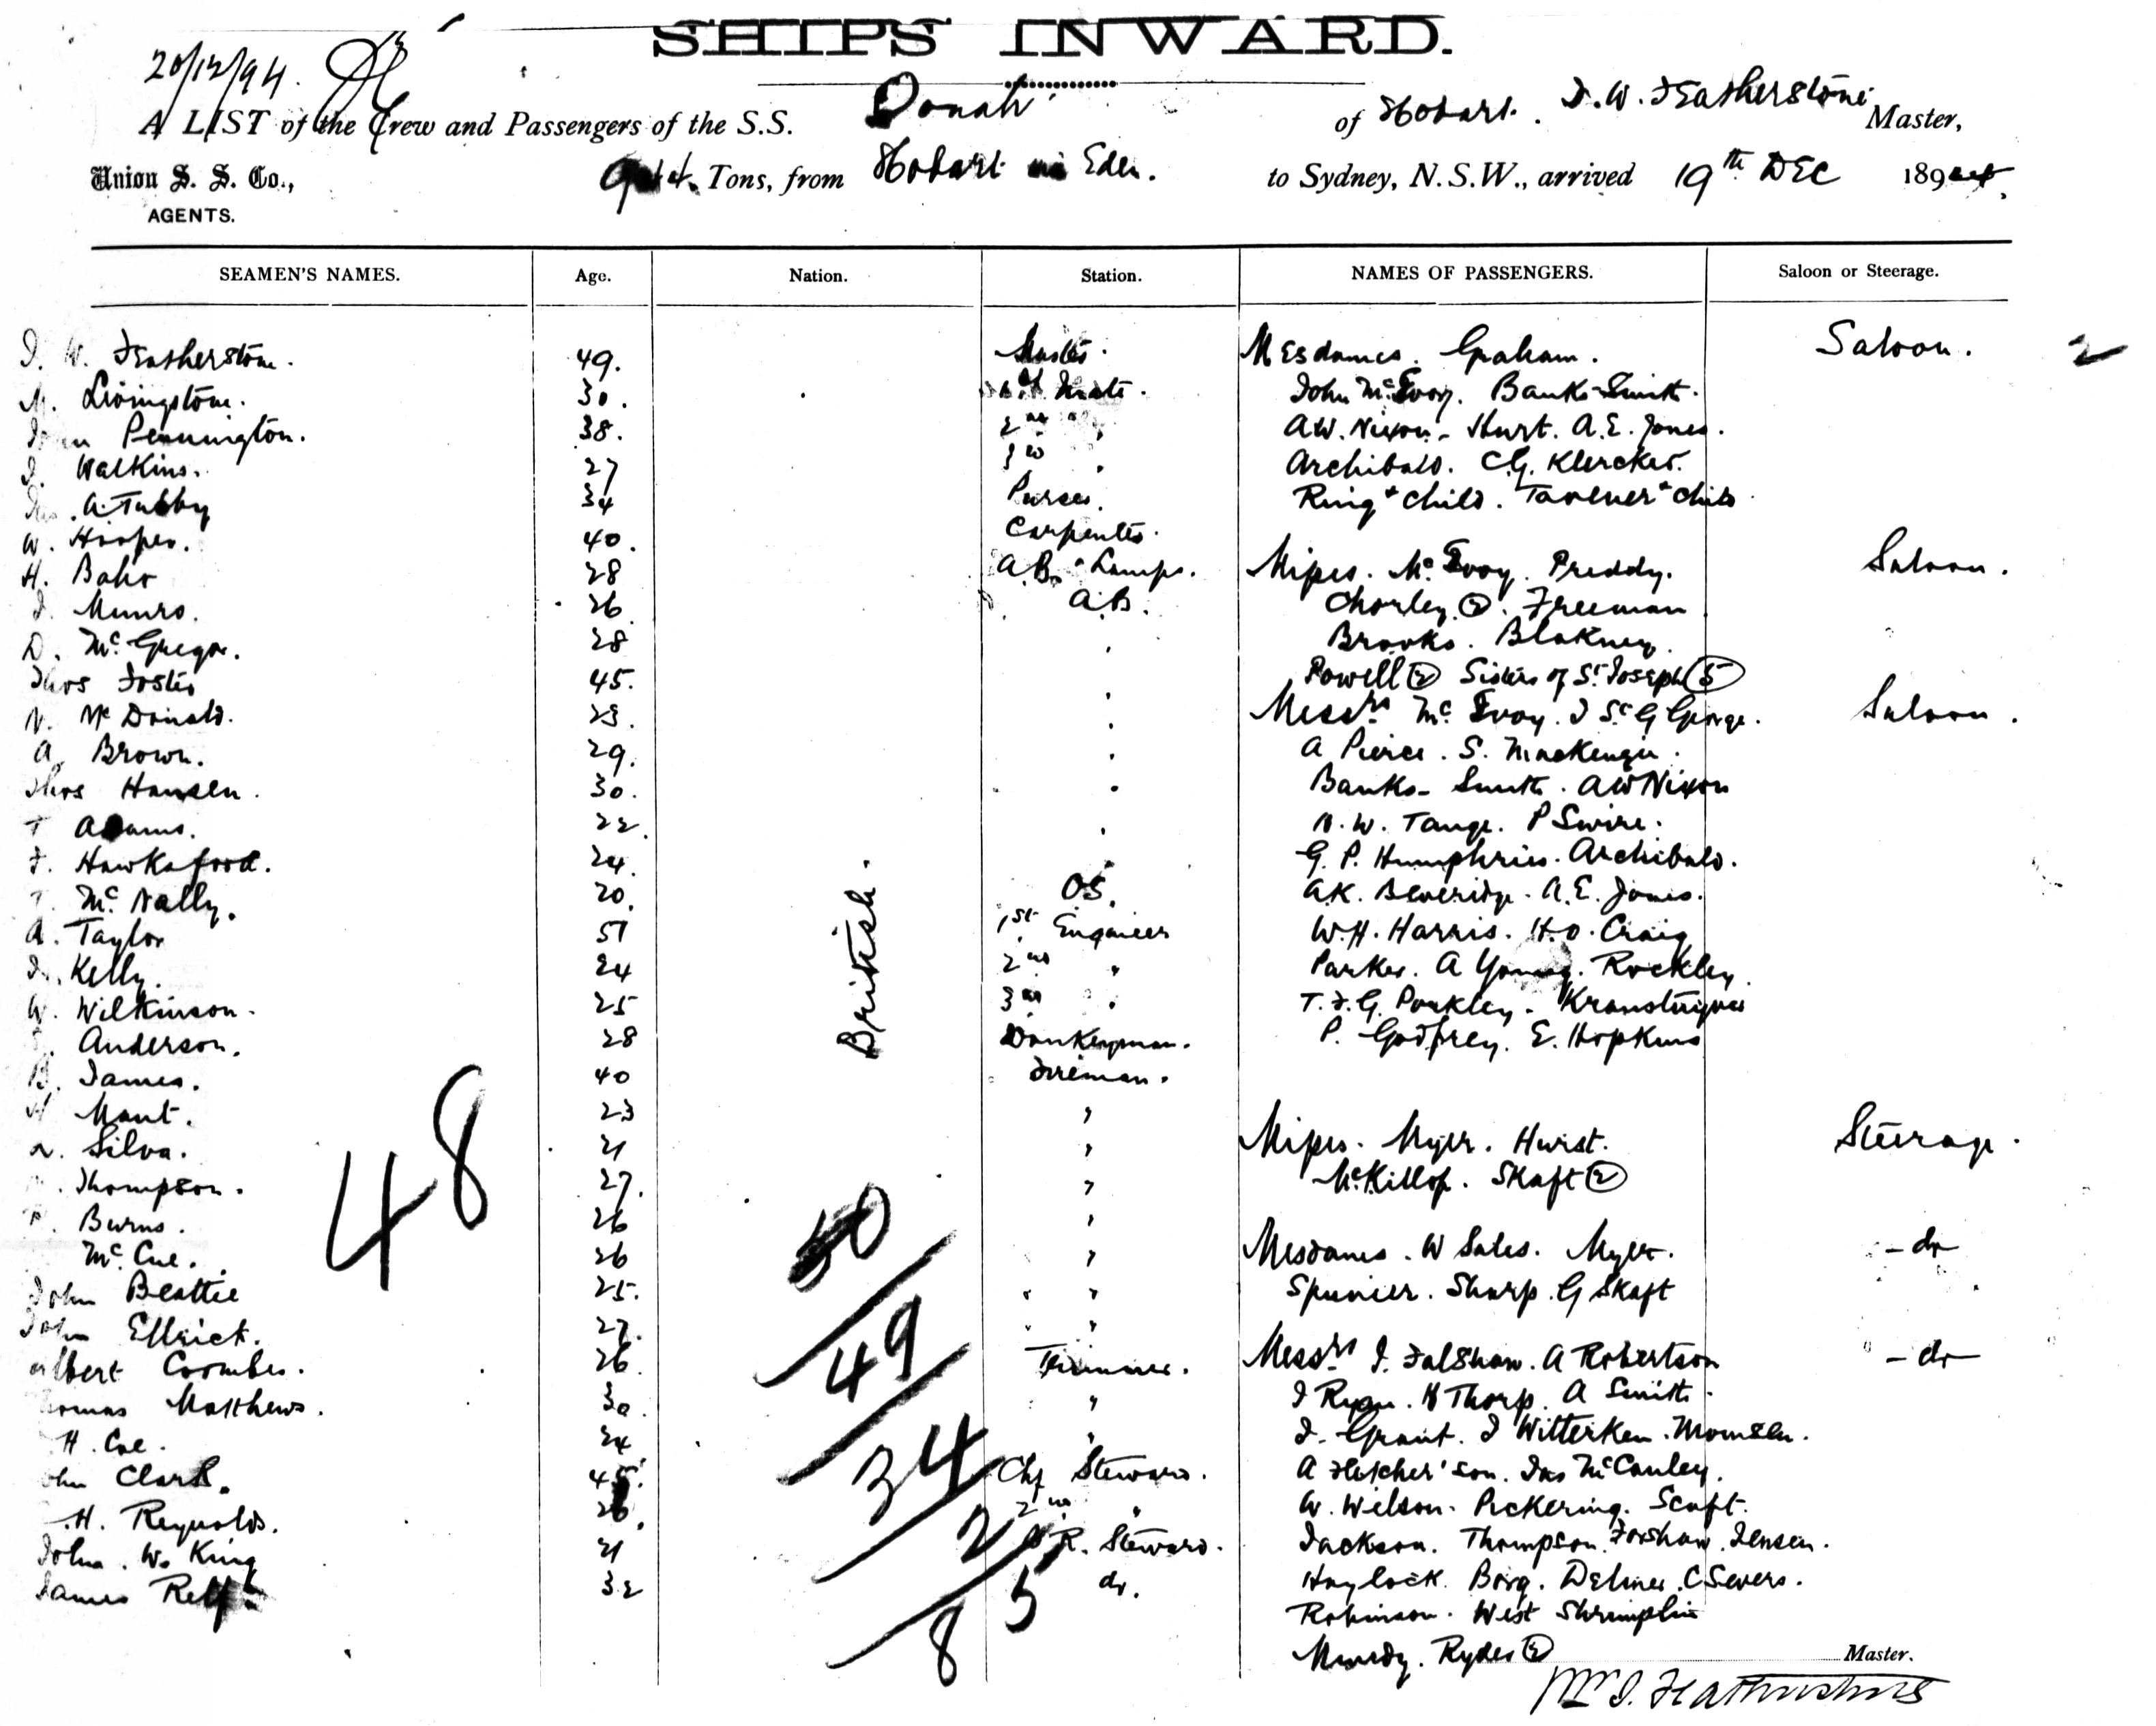 SHIPS INWARD.
20/12/94.
A LIST of the Crew and Passengers of the S.S. Oonah of Hobart. J. W. Featherstone Master,
Union S. S. Co., Tons, from Hobart via Eden. to Sydney, N.S.W., arrived 19th DEC 189
AGENTS.
SEAMEN'S NAMES. Age. Nation. Station. NAMES OF PASSENGERS. Saloon or Steerage.
J. W. Featherstone. 49. Master. Mesdames. Graham. Saloon. 2
M. Livingstone. 30. 1st Mate. John McEvoy. Banks-Smith.
John Pennington. 38. 2nd " AW. Nixon. Hurt. A.E. Jones.
J. Watkins. 27 3rd " Archibald. C.G. Klercker.
A. Tubby 34 Purser. Ring + child. Tavener + child
W. Hooper. 40. Carpenter.
H. Bahr 28 A.B. + Lamps. Misses. McEvoy. Preddy. Saloon.
J. Munro. 26 A.B. Chorley (2). Freeman
D. McGregor. 28 " Brooks. Blakney.
Thos Foster 45. " Powell (2) Sisters of St. Joseph (5)
N. McDonald. 23. " Messrs McEvoy. J St. G George. Saloon.
A. Brown. 29. " A Pierce. S. Mackenzie.
Thos Hansen. 30. " Banks-Smith. AW Nixon
T Adams. 22. " W. Tange. P Swire.
F. Hawkaford. 24. " G. P. Humphries. Archibald.
T. McNally. 20. OS. AK. Beveridge. A.E. Jones.
A. Taylor 51 1st Engineer W.H. Harris. H.O. Craig
J. Kelly. 24 2nd " Parker. A Young. Rockley.
W. Wilkinson. 25 3rd " T.F.G. Pockley.
Anderson. 28 Donkeyman. P. Godfrey. E. Hopkins
British.
B. James. 40 Fireman.
H Mant. 23 "
Silva. 21 " Misses. Myer. Hurst. Steerage.
Thompson. 27. " McKillop. Skaft (2)
P. Burns. 26 "
McCue. 26 " Mesdames. W Sales. Myer. - do
John Beattie 25. " Spunier. Sharp. G Skaft
John Ellrick. 27. "
Albert Coombes. 26 Trimmer. Messrs J. Falshaw. A Robertson - do
Thomas Matthews. 30. " J Ryan. H Thorp. A Smith.
H. Coe. 24 " J. Grant. J Witterken. Momsen.
John Clark. 45. Chf Steward. A Fletcher + son. Jas McCauley.
H. Reynolds. 26. 2nd " W. Wilson. Pickering. Scaft.
John. W. King 21 R. Steward. Jackson. Thompson. Forshaw. Jensen.
James Relf. 32 do. Haylock. Borg. Delmer. C Severs.
Robinson. West Shrimplin
Mundy. Ryder (2)
48
50
49
34
2
5
8
Master.
J. Featherstone